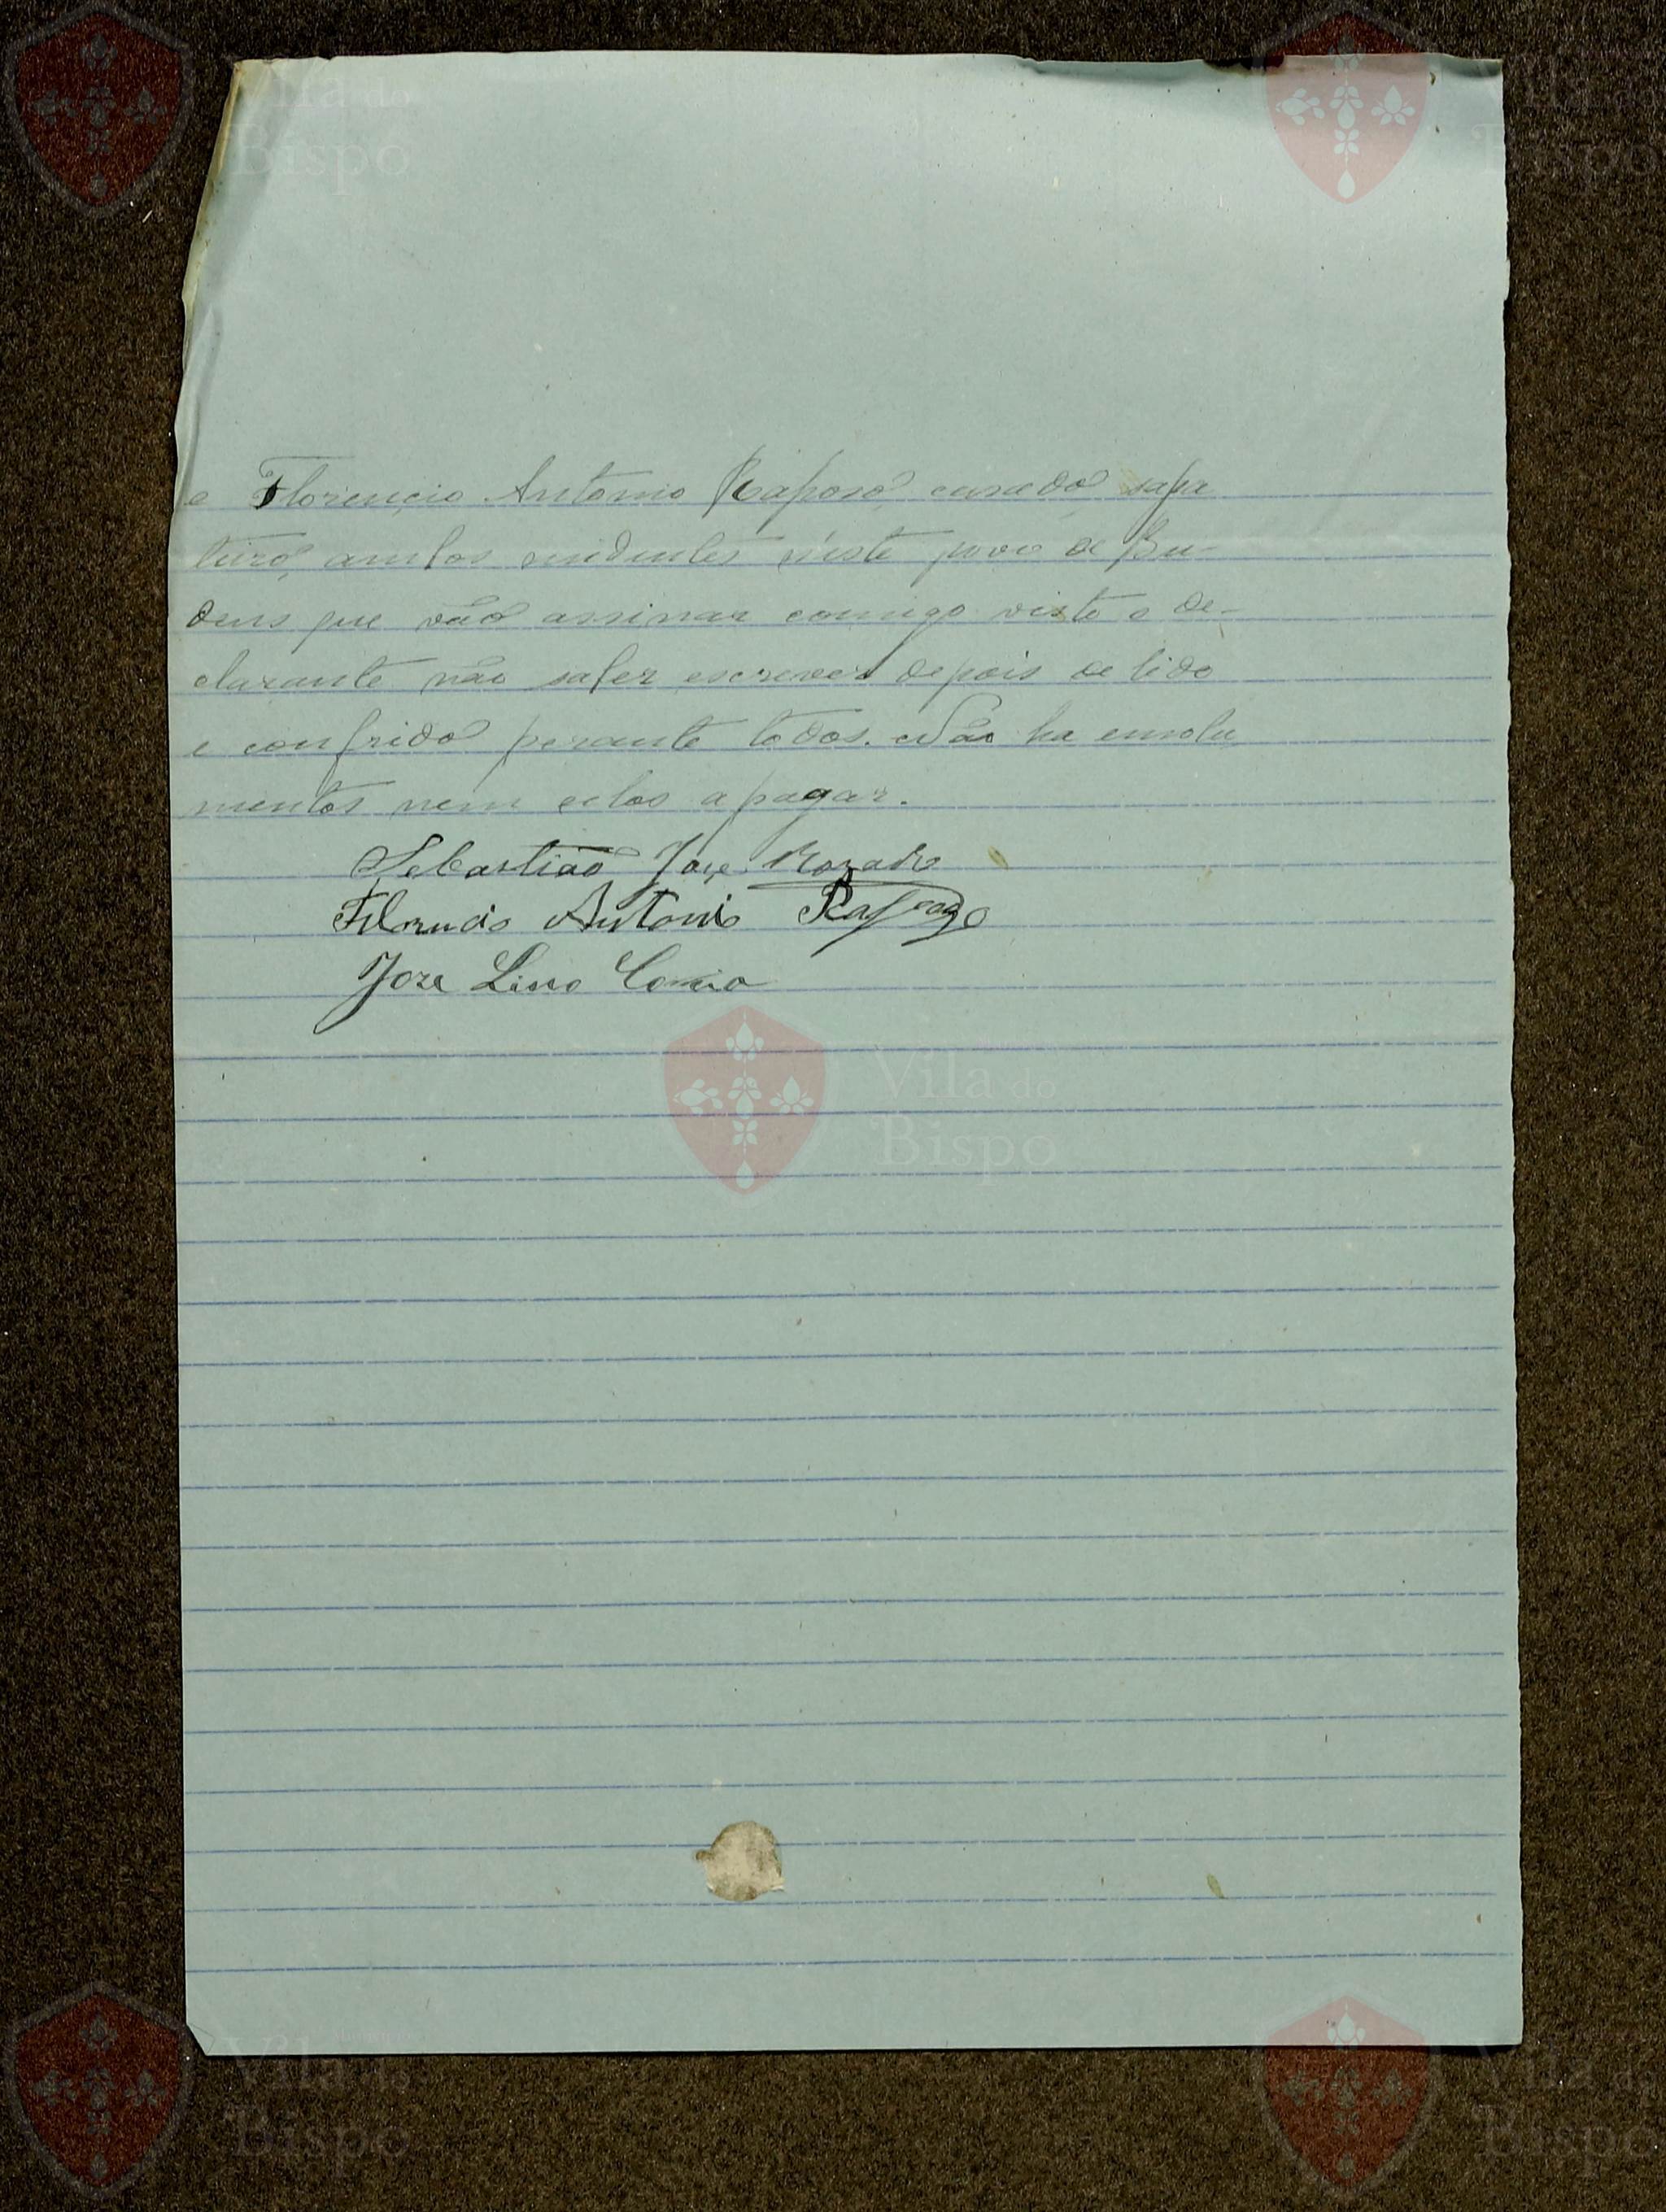 e Florencio Antonio Raposo, casado, sapa
teiro, ambos residentes n'este povo de Bu-
dens que vão assinar comigo visto o de-
clarante não saber escrever depois de lido
e confrido perante todos. Não ha emolu
mentos nem selos a pagar.
Sebastião José Rozado
Florencio Antonio Raposo
Jose Lino Correia
Vila do
Bispo